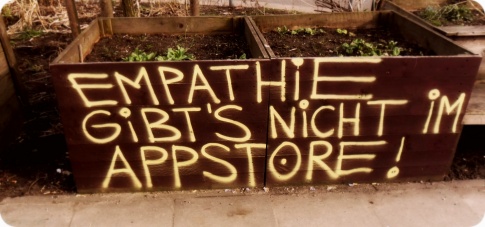 EMPATHIE
GIBT'S NICHT IM
APPSTORE!